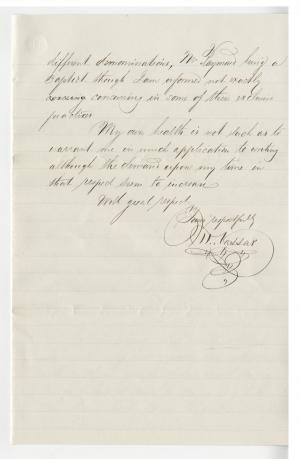 different denominations, Mr Raymond being a
baptist though I am informed not exactly
concurring in some of their exclusive
practices
My own health is not such as to
warrant me in much application to writing
although the demands upon my time in
that respect seem to increase
With great respect
Yours respectfully
M. Vassar